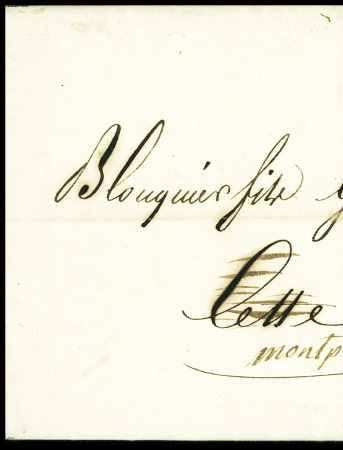 Blouquier fils
Cette
montp